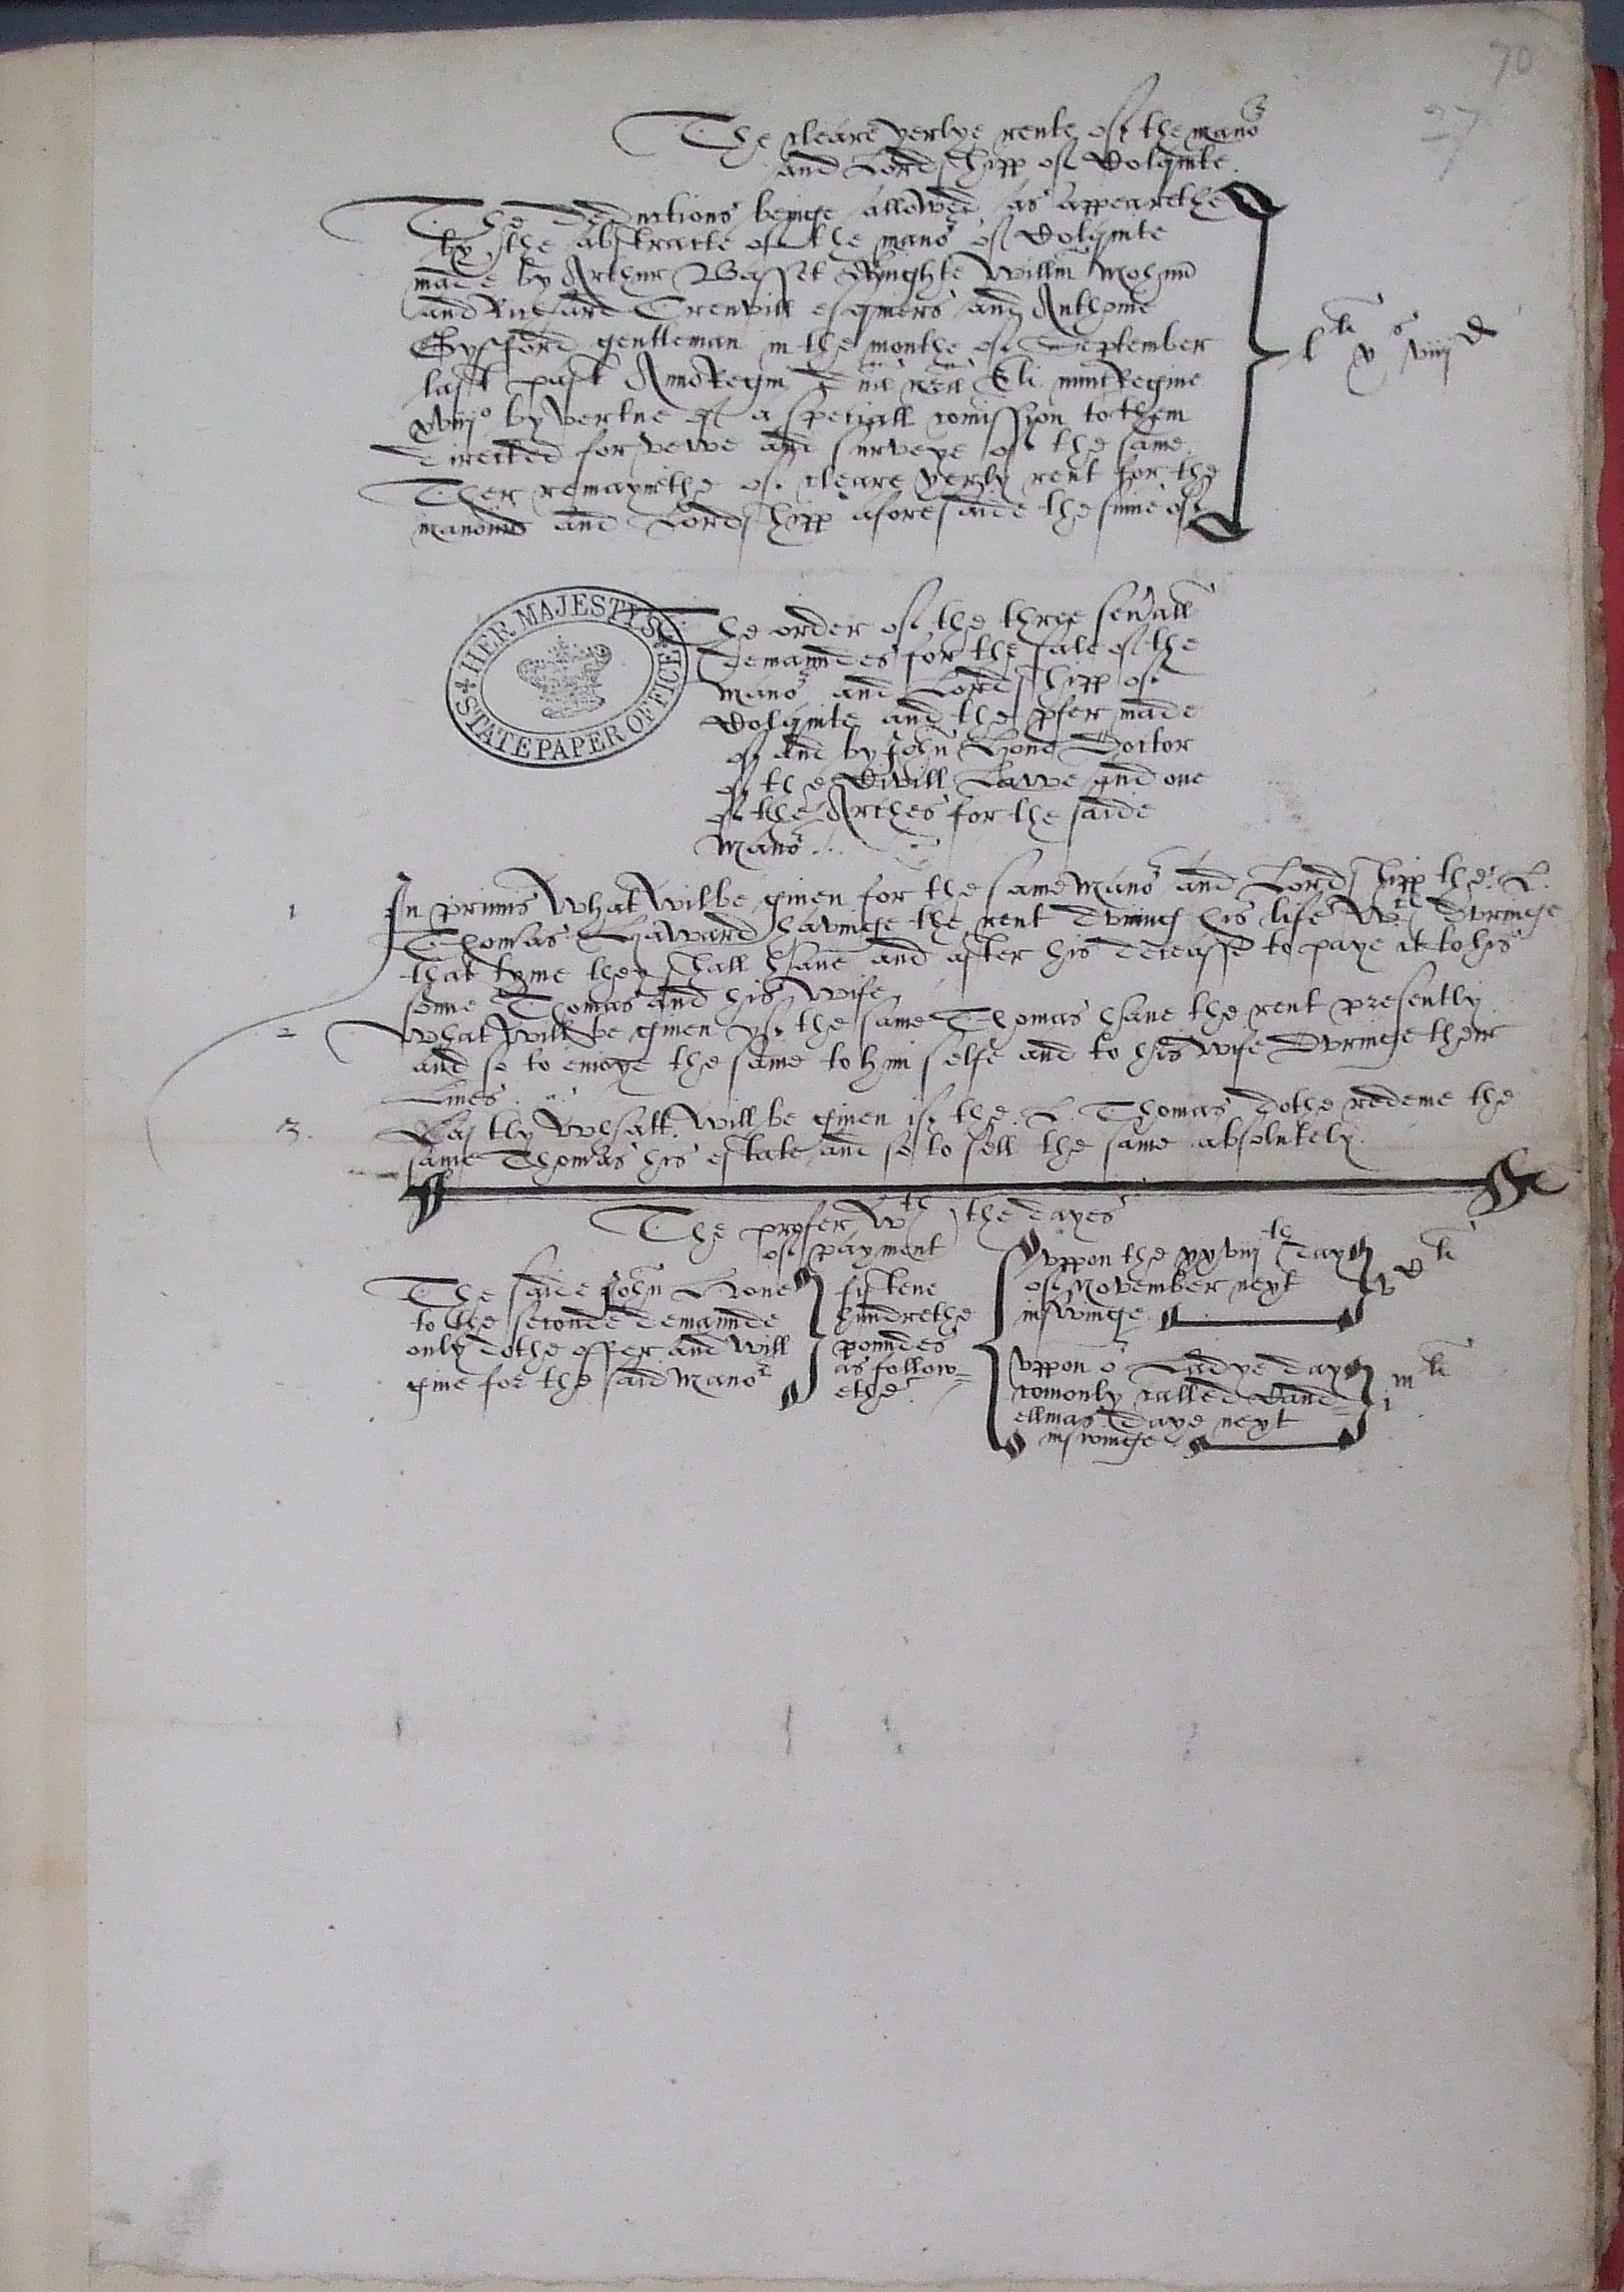 70
27
The cleare yerlye rente of the mano^r
and Lordshipp of Colquite.
The deductions beinge allowed as appearethe
by the abstracte of the mano^r of Colquite
made by Arthur Basset Knighte Willm Mohun
and Richard Grenvill esquiers and Anthonie
gentleman in the monthe of September
last past Anno Regni Dne nre Eli nunc Regine
xviij^o by vertue of a speciall comission to them
directed for vewe and surveye of the same.
Ther remaynethe of cleare yerly rent for the
mano^r and Lordshipp aforesaide the sume of
l^li x^s viij^d
HER MAJESTY'S STATE PAPER OFFICE
The order of the three sevall
demaundes for the sale of the
mano^r and Lordshipp of
Colquite and the pfer made
of and by John Lone Doctor
of the Civill Lawe and one
of the Arches for the saide
mano^r
1 In primis What wilbe given for the same mano^r and Lordshipp the L.
Thomas Haward havinge the rent duringe his life w^ch duringe
that tyme they shall have and after his deceasse to paye it to his
sonne Thomas and his wife
2 What will be given yf the same Thomas have the rent presently
and so to enioye the same to him selfe and to his wife duringe their
Lives.
3. Lastly What will be given if the L. Thomas dothe redeme the
same Thomas his estate and so to sell the same absolutely.
The profer w^th the dayes
of payment
The saide John Lone
to the seconde demaunde
only dothe offer and will
give for the said mano^r
fiftene
hundrethe
poundes
as follow=
ethe.
Vppon the xxviij^th day
of November next
insuinge
v^c li
Vppon o^r Ladye day
comonly called Cand=
ellmas daye next
insuinge
j m^li